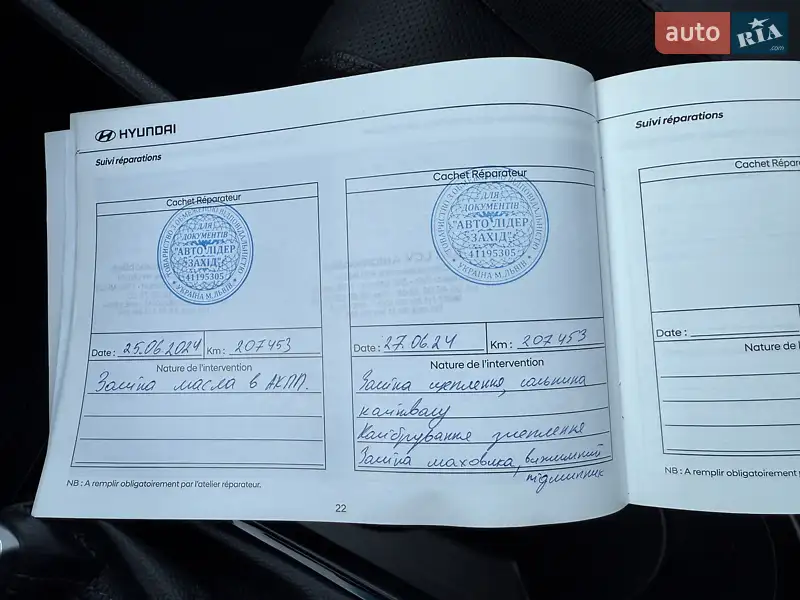 auto RIA.com
HYUNDAI
Suivi réparations
Cachet Réparateur
ТОВАРИСТВО З ОБМЕЖЕНОЮ ВІДПОВІДАЛЬНІСТЮ
ДЛЯ
ДОКУМЕНТІВ
"АВТО ЛІДЕР
ЗАХІД"
41195305
* УКРАЇНА М.ЛЬВІВ *
Date : 25.06.2024 Km : 207453
Nature de l'intervention
Заміна масла в АКПП.
NB : A remplir obligatoirement par l'atelier réparateur.
Cachet Réparateur
ТОВАРИСТВО З ОБМЕЖЕНОЮ ВІДПОВІДАЛЬНІСТЮ
ДЛЯ
ДОКУМЕНТІВ
"АВТО ЛІДЕР
ЗАХІД"
41195305
* УКРАЇНА М.ЛЬВІВ *
Date : 27.06.24 Km : 207453
Nature de l'intervention
Заміна щеплення, сальника
колінвалу
Калібрування зчеплення
Заміна маховика, вижимний
підшипник
22
Suivi réparations
Cachet Répar
Date :
Nature de l
NB : A remplir obligatoirement par l'atelie